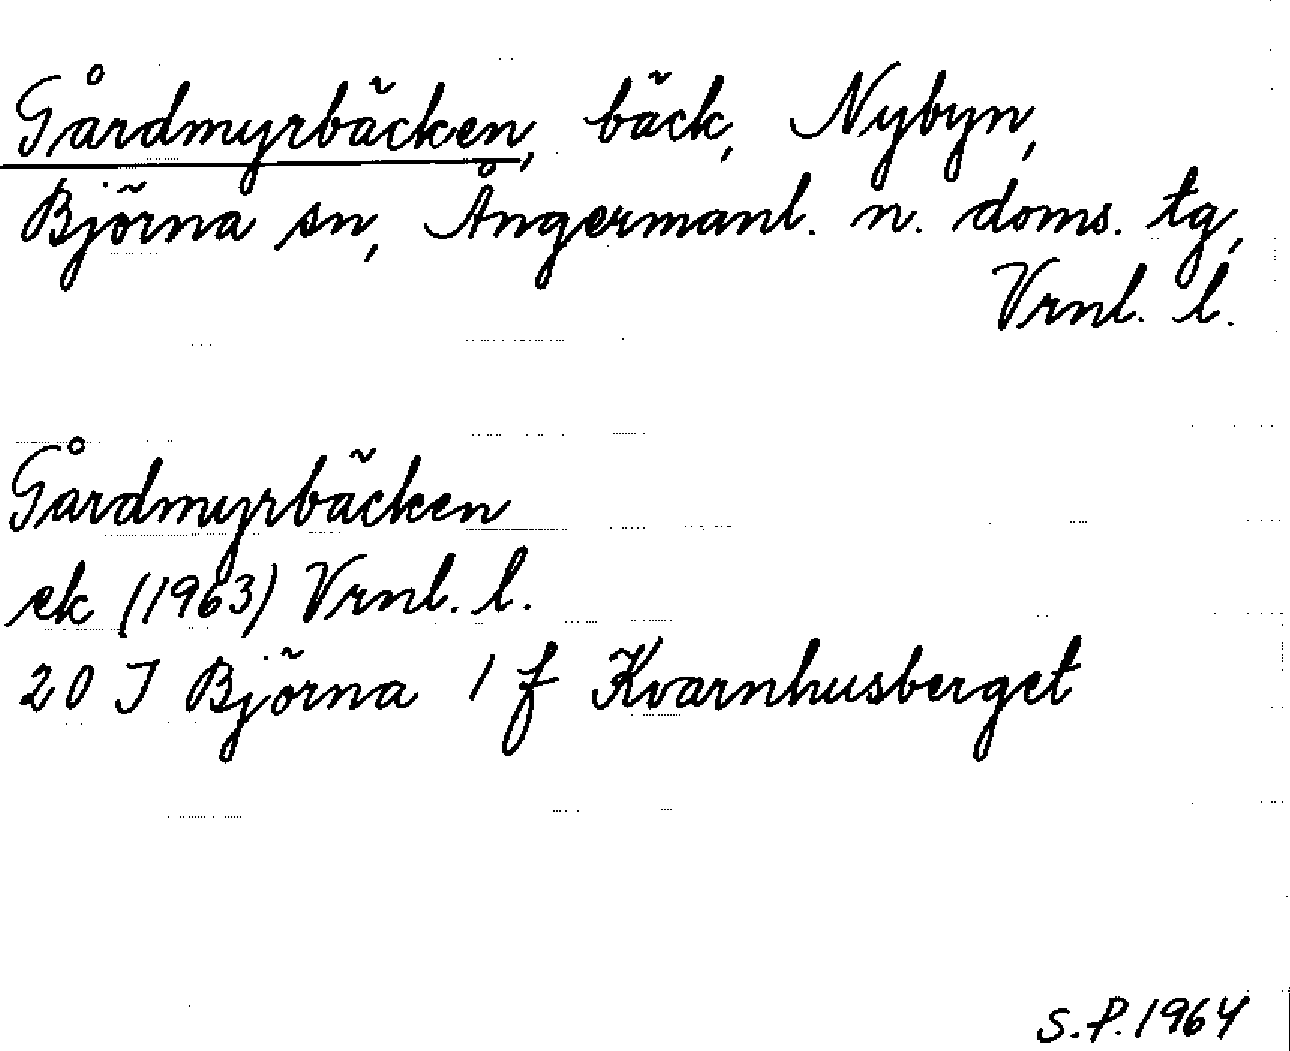 Gårdmyrbäcken, bäck, Nybyn,
Björna sn, Ångermanl. n. doms. tg,
Vrnl. l.
Gårdmyrbäcken
ek (1963) Vrnl. l.
20 I Björna 1 f Kvarnhusberget
S.P. 1964